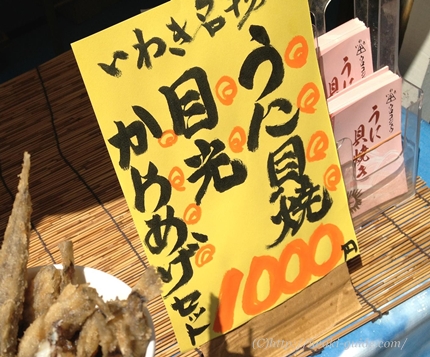 いわき名物
うに貝焼
目光
からあげセット
1000円
うに
貝焼き
うに
貝焼き